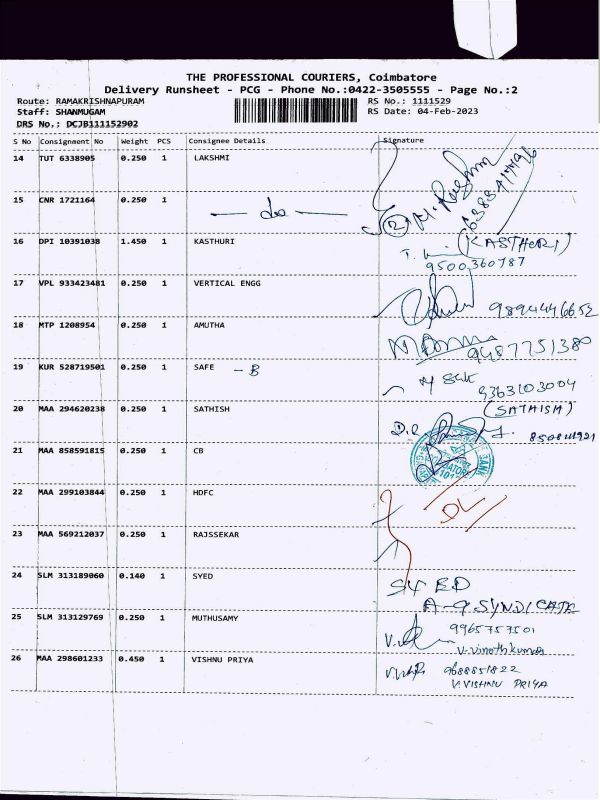 THE PROFESSIONAL COURIERS, Coimbatore
Delivery Runsheet - PCG - Phone No.:0422-3505555 - Page No.:2
Route: RAMAKRISHNAPURAM RS No.: 1111529
Staff: SHANMUGAM RS Date: 04-Feb-2023
DRS No.; DCJB111152902
S No Consignment No Weight PCS Consignee Details Signature
14 TUT 6338905 0.250 1 LAKSHMI
15 CNR 1721164 0.250 1 — do —
16 DPI 10391038 1.450 1 KASTHURI (KASTHURI)
9500360787
17 VPL 933423481 0.250 1 VERTICAL ENGG 9894446652
18 MTP 1208954 0.250 1 AMUTHA 9487751380
19 KUR 528719501 0.250 1 SAFE - B 9363103004
20 MAA 294620238 0.250 1 SATHISH (SATHISH)
21 MAA 858591815 0.250 1 CB
22 MAA 299103844 0.250 1 HDFC DL
23 MAA 569212037 0.250 1 RAJSSEKAR
24 SLM 313189060 0.140 1 SYED SYED
25 SLM 313129769 0.250 1 MUTHUSAMY 9965757501
V. Vinothkumar
26 MAA 298601233 0.450 1 VISHNU PRIYA 9688851822
V. VISHNU PRIYA